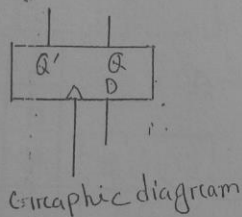 Q' Q
D
Grircaphic diagream